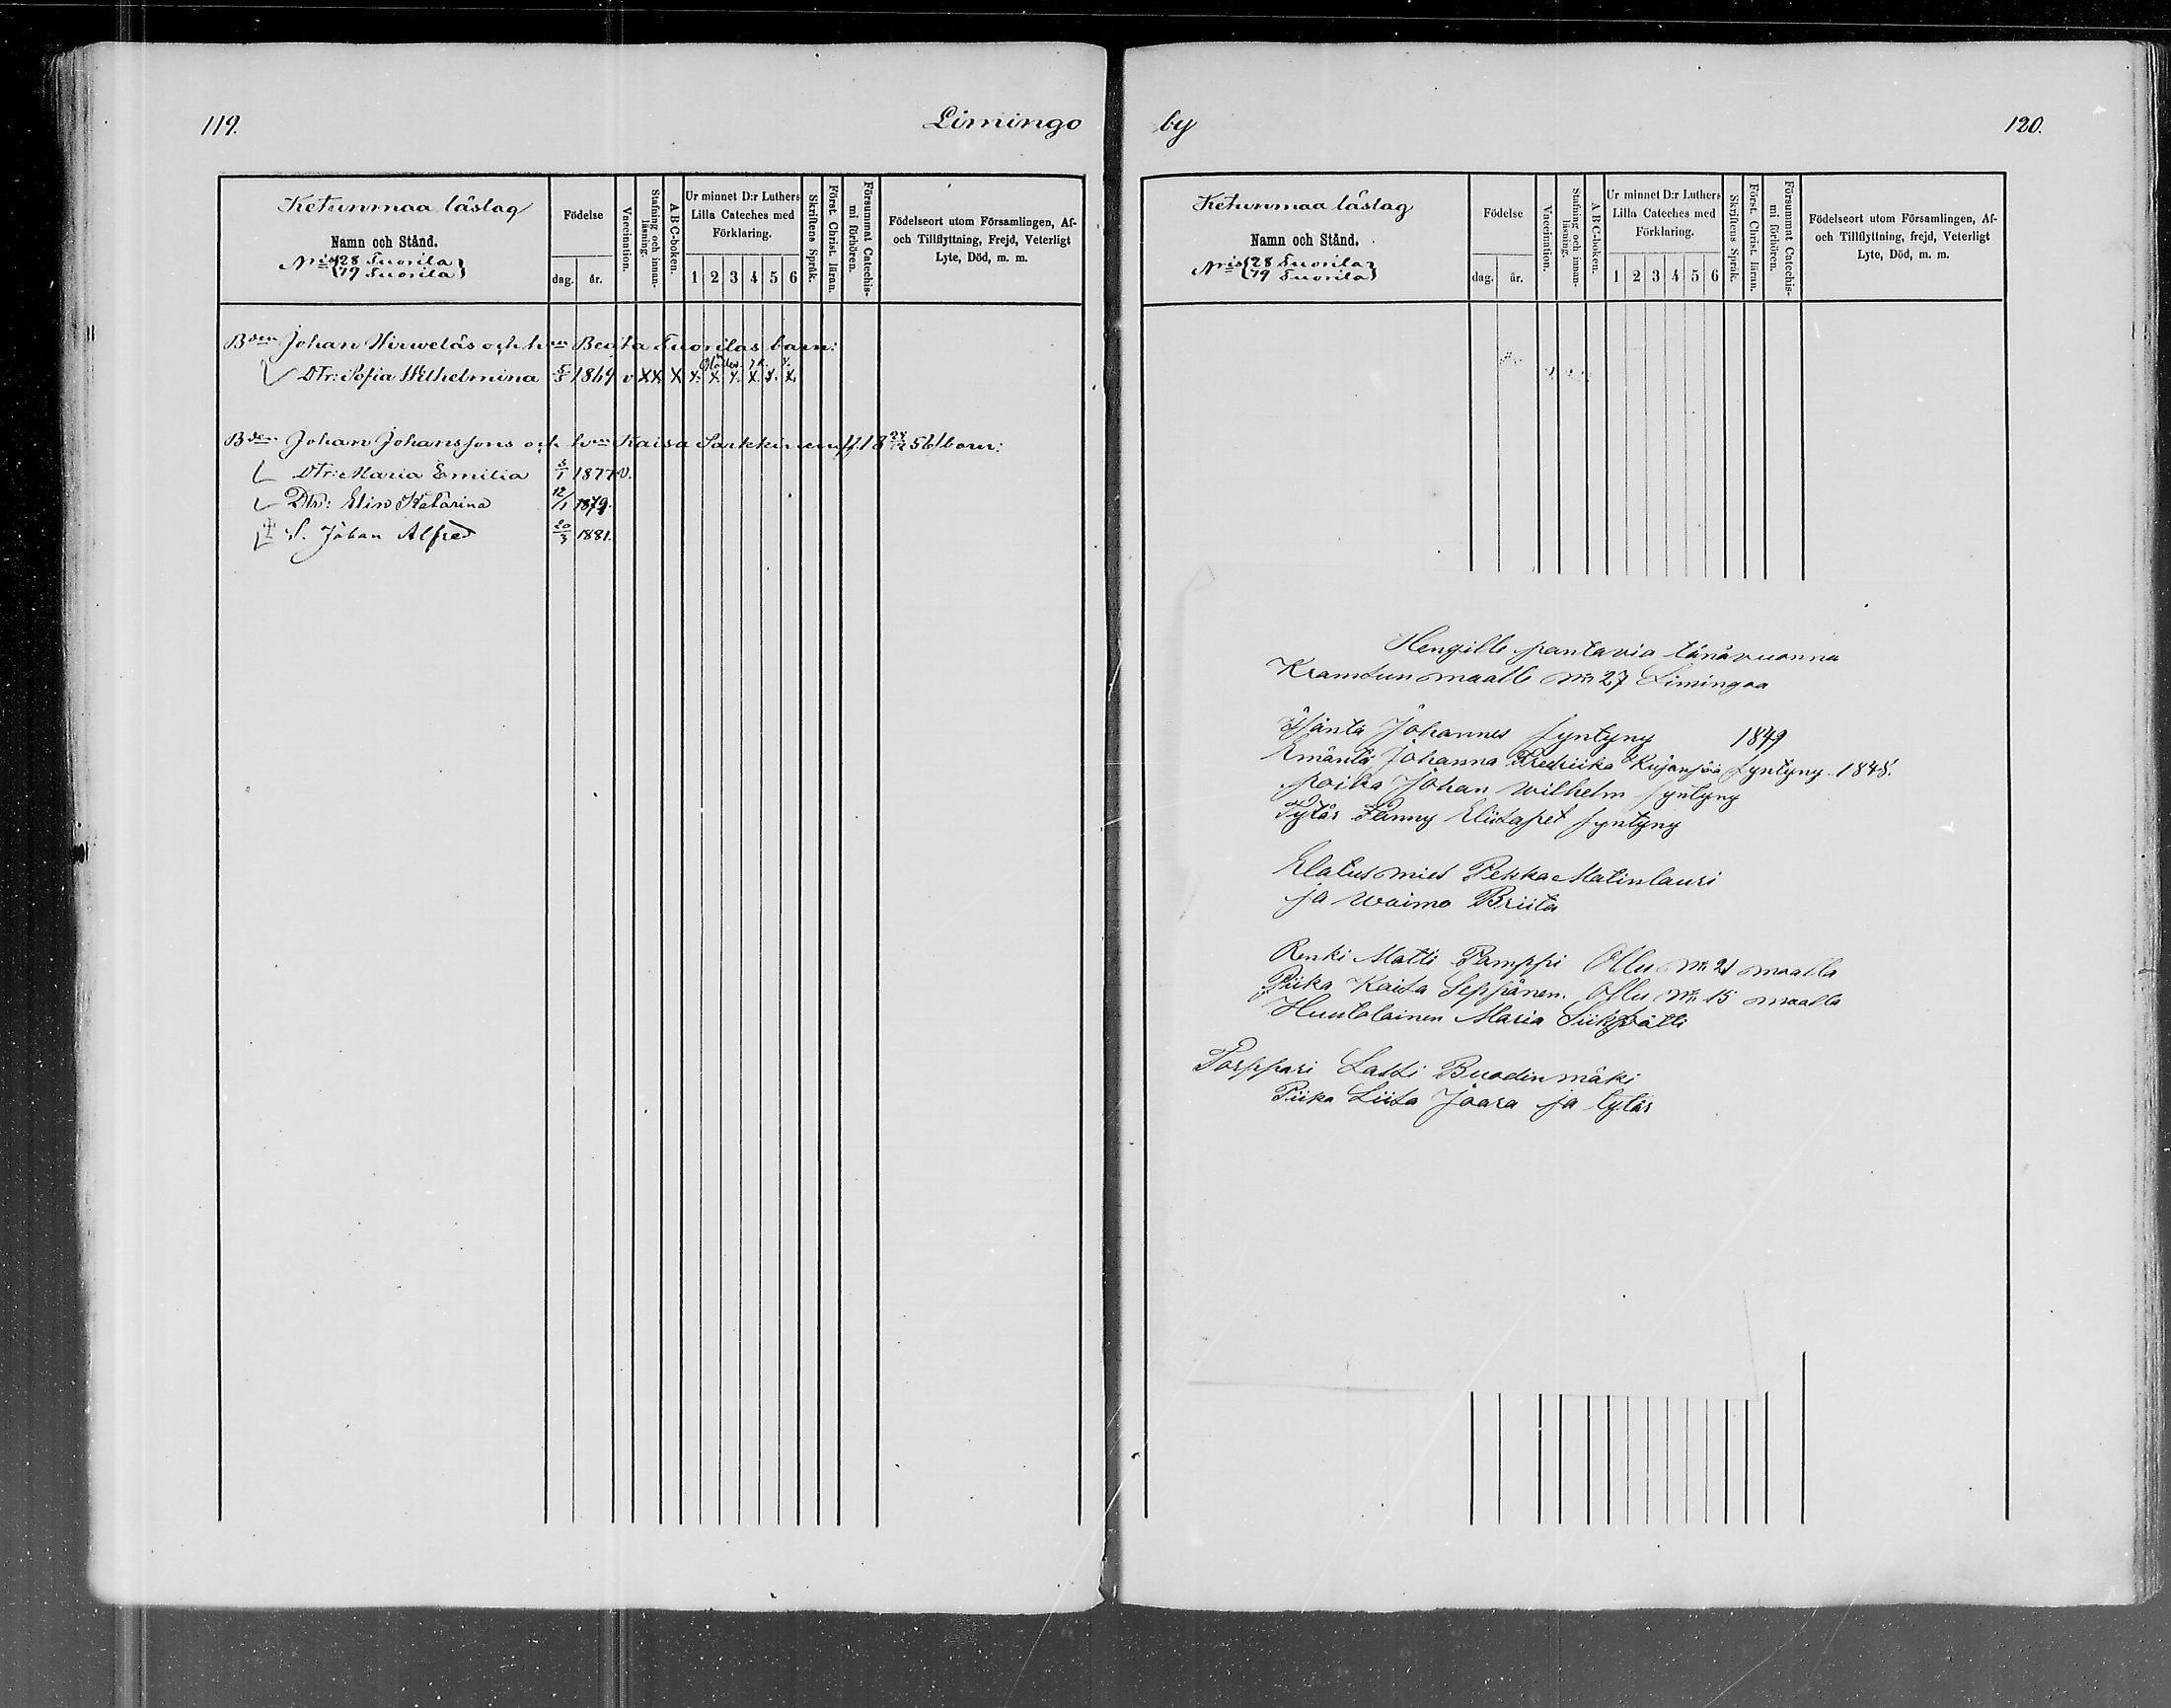 119.
Limingo
Ketunmaa läslag
Namn och Stånd.
N:ris 28 Tuorila
79 Tuorila
Födelse
dag.
år.
Vaccination.
Stafning och innan-
läsning.
A B C-boken.
Ur minnet D:r Luthers
Lilla Cateches med
Förklaring.
1 2 3 4 5 6
Skriftens Språk.
Först. Christ. läran.
Försummat Catechis-
mi förhören.
Födelseort utom Församlingen, Af-
och Tillflyttning, Frejd, Veterligt
Lyte, Död, m. m.
Bden Johan Hirweläs och h:un Beata Tuorilas barn:
Dtr: Sofia Wilhelmina 5/5 1869 v X X X X. X. X. X. X. X.
Bden Johan Johanssons och h:un Kaisa Sarkkinen f. 18 24/12 56 barn:
Dtr: Maria Emilia 5/1 1877 v.
Dtr: Elin Katarina 12/1 1879.
S. Johan Alfred 20/3 1881.
by
120.
Ketunmaa läslag
Namn och Stånd.
N:ris 28 Tuorila
79 Tuorila
Födelse
dag.
år.
Vaccination.
Stafning och innan-
läsning.
A B C-boken.
Ur minnet D:r Luthers
Lilla Cateches med
Förklaring.
1 2 3 4 5 6
Skriftens Språk.
Först. Christ. läran.
Försummat Catechis-
mi förhören.
Födelseort utom Församlingen, Af-
och Tillflyttning, frejd, Veterligt
Lyte, Död, m. m.
Hengille pantavia tänävuonna
Kramsun maalle No 27 Limingaa
Isäntä Johannes syntyny 1849
Emäntä Johanna Fredriika Kujanpää Syntyny 1848.
poika Johan Wilhelm syntyny
Tytär Fanny Eliisapet syntyny
Elatus mies Pekka Matinlauri
ja Waimo Briita
Renki Matti Pamppi Ollu No 21 maalla
Piika Kaisa Seppänen. Ollu No 15 maalla
Huutolainen Maria Siikpätti
Torppari Lassi Buodinmäki
Piika Liisa Jaara ja tytär